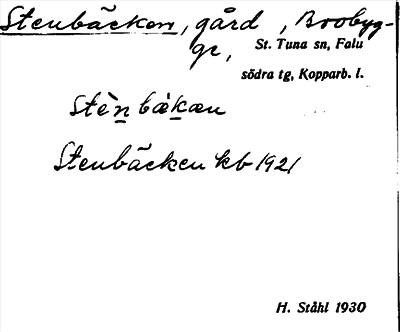 Stenbäcken, gård, Brobyg-
gr, St. Tuna sn, Falu
södra tg, Kopparb. l.
stèn bäkæn
Stenbäcken kb 1921
H. Ståhl 1930